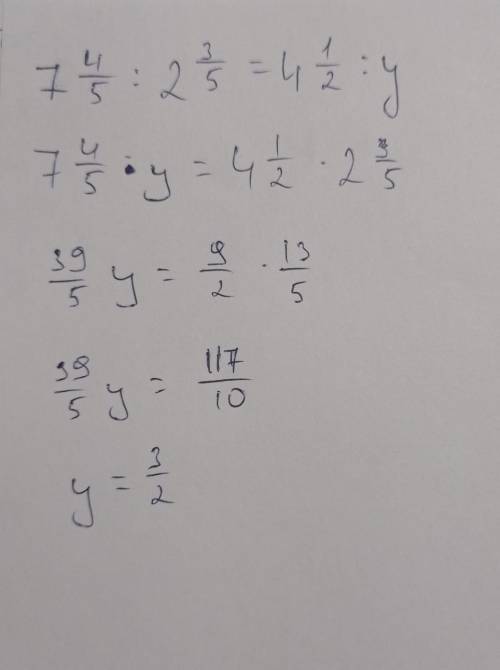 7 4/5 : 2 3/5 = 4 1/2 : y
7 4/5 · y = 4 1/2 · 2 3/5
39/5 y = 9/2 · 13/5
39/5 y = 117/10
y = 3/2